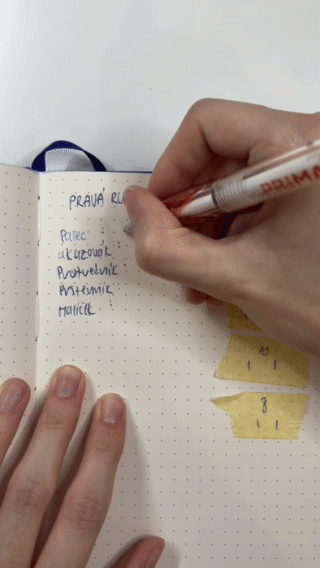 PRAVÁ RU
Palec
ukazovák
Prostredník
Prstenník
Malíček
PRIMA
10
1 1
8
1 1